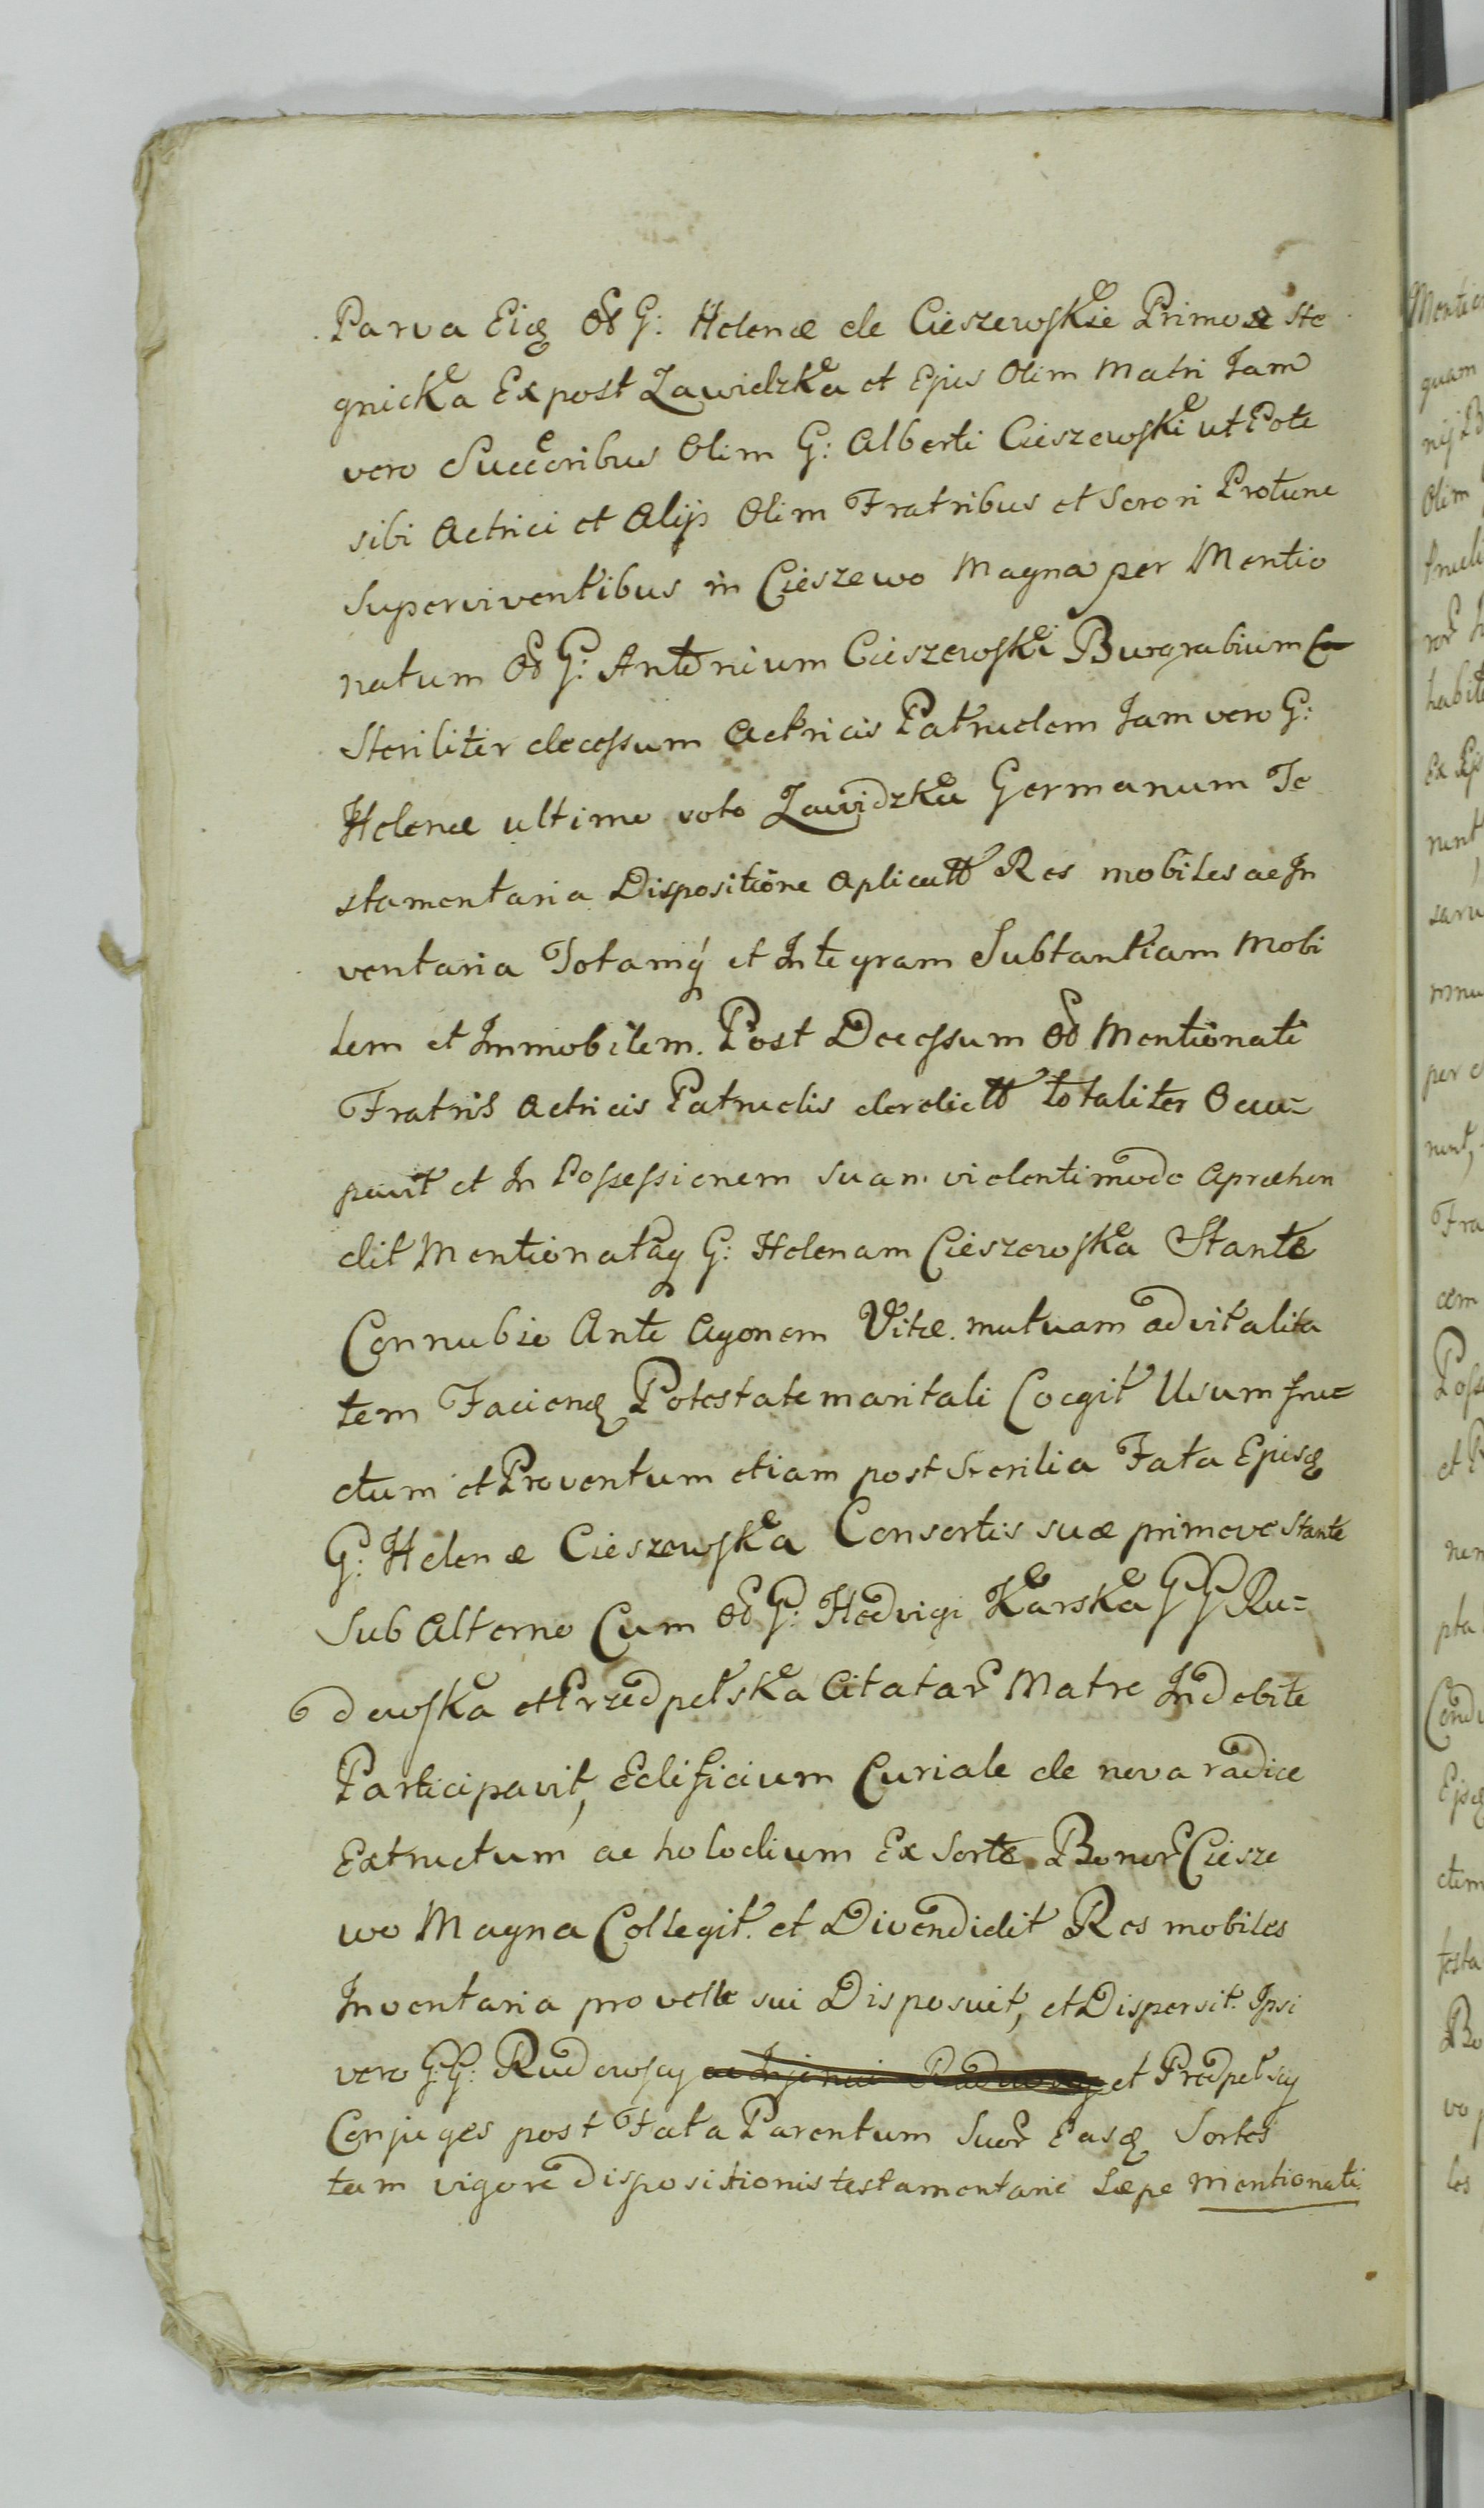 Parva Eidq. Ol G: Helenæ de Cieszewskie Primo Ste
gnicka Expost Zawidzka et Ejus Olim Matri Jam
vero Succoribus Olim G: Alberti Cieszewski ut Pote
sibi Actrici et Alijs Olim Fratribus et Sorori Protunc
Superviventibus in Cieszewo Magna per Mentio
natum Ol G: Antonium Cieszewski Burgrabium
Steriliter decessum Actricis Patruelem Jam vero G:
Helenæ ultimo voto Zawidzka Germanum Te
stamentaria Dispositione Aplicatt Res mobiles ac In
ventaria Totamq et Integram Subtantiam Mobi
lem et Immobilem. Post Decessum Ol Mentionati
Fratris Actricis Patruelis derelictt totaliter Occu=
pavit et In Possessionem suam violentimodo Apræhen
dit Mentionatāq G: Helenam Cieszewska Stante
Connubio Ante Agonem Vitæ mutuam advitalita
tem Faciend Potestate maritali Coegit Usumfru=
ctum et Proventum etiam post Sterilia Fata Ejusd
G: Helenæ Cieszewska Consortis suæ primeve Stante
Sub Alterno Cum Ol G: Hedvigi Karska G G Ru=
dowska et Przedpełska Citatar Matre Indebite
Participavit, Edificium Curiale de nova radice
Extructum ac holodium Ex Sorte Bonor Ciesze
wo Magna Collegit et Divendidit Res mobiles
Inventaria pro velle sui Disposuit, et Dispersit. Ipsi
vero G:G: Rudowscy et Predpełscy
Conjuges post Fata Parentum Suor Easd Sortes
tam vigore dispositionis testamentarie Sæpe mentionati